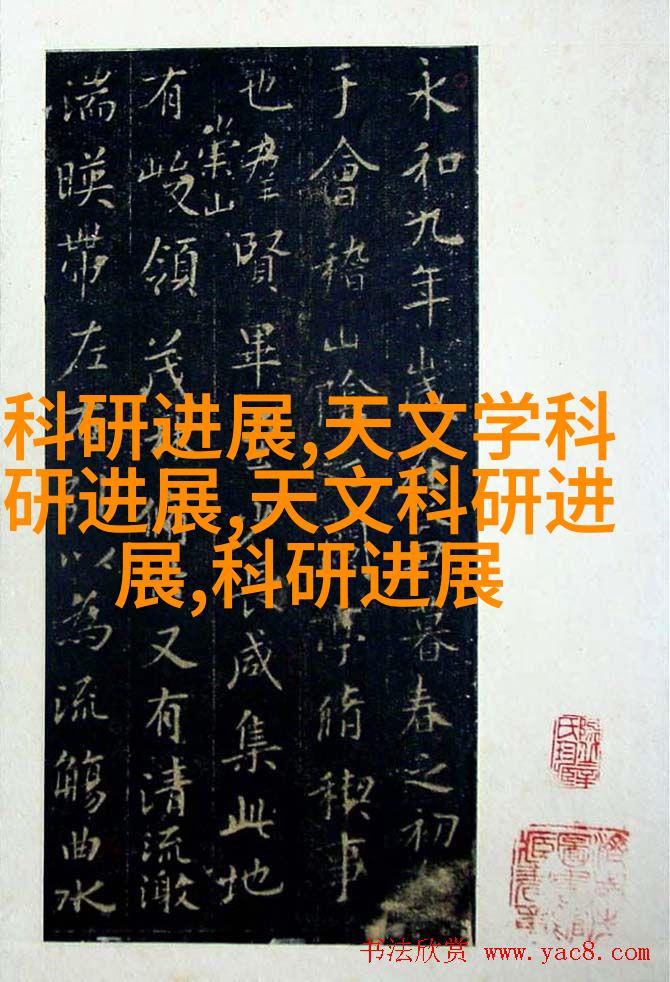 永和九年歲暮春之初
于會稽山陰脩禊事
也羣賢畢咸集此地
有崇山峻領茂又有清流激
湍暎帶左右以為流觴曲水
科研进展,天文学科
研进展,天文科研进
展,科研进展
书法欣赏 www.yac8.com